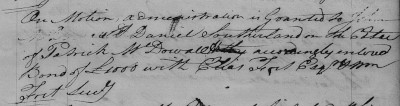 On Motion, administration is Granted to John
At Daniel Southerland on the Estate
of Patrick McDowal accordingly entered
Bond of £1000 with Elias Fort Esqr & Wm
Fort Secy